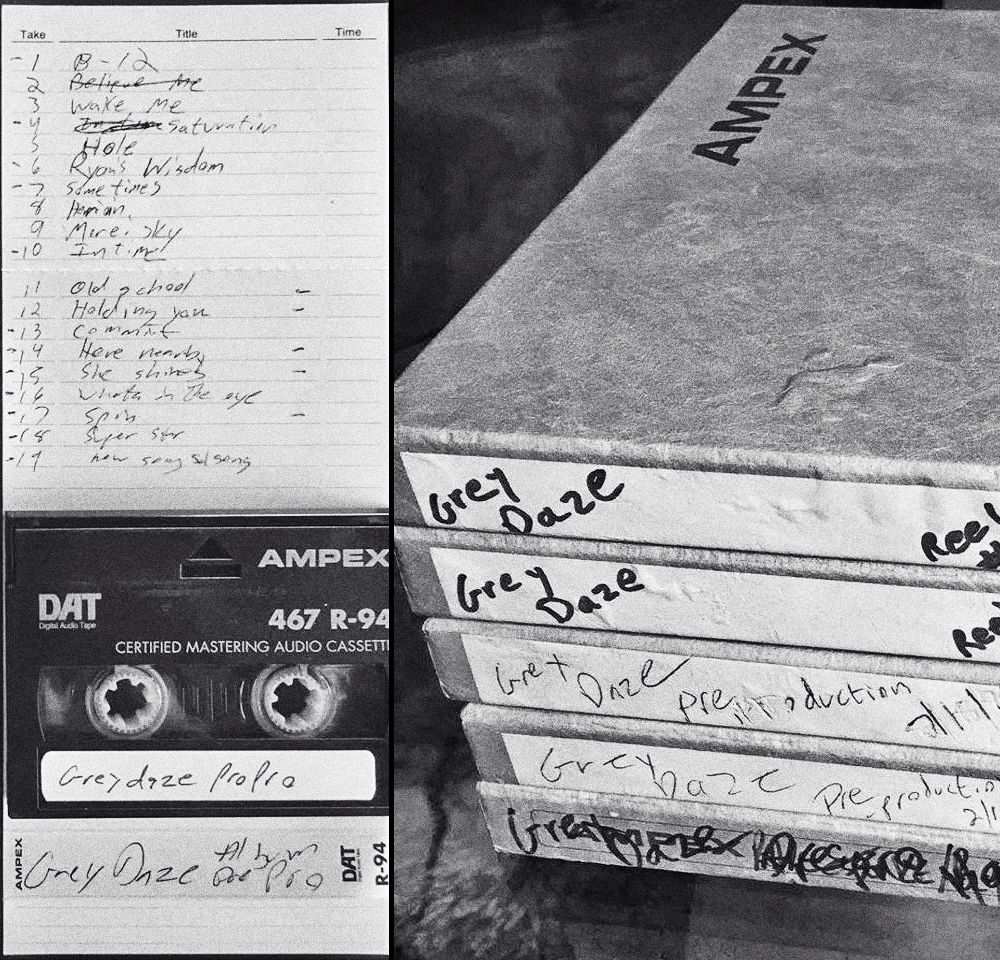 Take Title Time
-1 B-12
2 Believe Me
3 Wake Me
-4 Saturation
5 Hole
-6 Ryan's Wisdom
-7 Sometimes
8
9 Morei Sky
-10 Intime
11 Old school -
12 Holding you -
-13 Commit
-14 Here nearby -
-15 She shines -
-16 whats in the eye
-17 Spin -
-18 Super Star
-19 new song
AMPEX
DAT
Digital Audio Tape
467 R-94
CERTIFIED MASTERING AUDIO CASSETTE
Greydaze ProPro
AMPEX
Grey Daze
Album
Pro
DAT
R-94
AMPEX
Grey
Daze
Reel
Grey
Daze
Reel
Grey Daze Pre production
Grey Daze Pre production